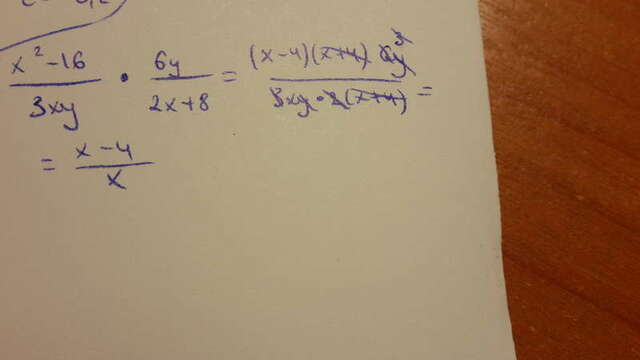 x² - 16 / 3xy • 6y / 2x + 8 = (x - 4)(x + 4) 6y 3 / 3xy • 2(x + 4) =
= x - 4 / x